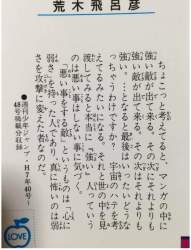 荒木飛呂彦
ちょこっと考えてると、マンガの中に
強い敵が出て来る。その次はそれより
強い敵が出て来る。その次はそれよりも
強い…となると最後はいったいどうな
っちゃうわけ？宇宙のハテを考
えてるみたいになる。それと世の中を見
渡してみると本当に「強い」人っていう
のは悪い事はしない事に気づく。
「悪い事をする敵」というものは「心に
弱さ」を持った人であり、真に怖いのは弱
さを攻撃に変えた者なのだ。
●週刊少年ジャンプH7年40号〜
48号掲載分収録
LOVE